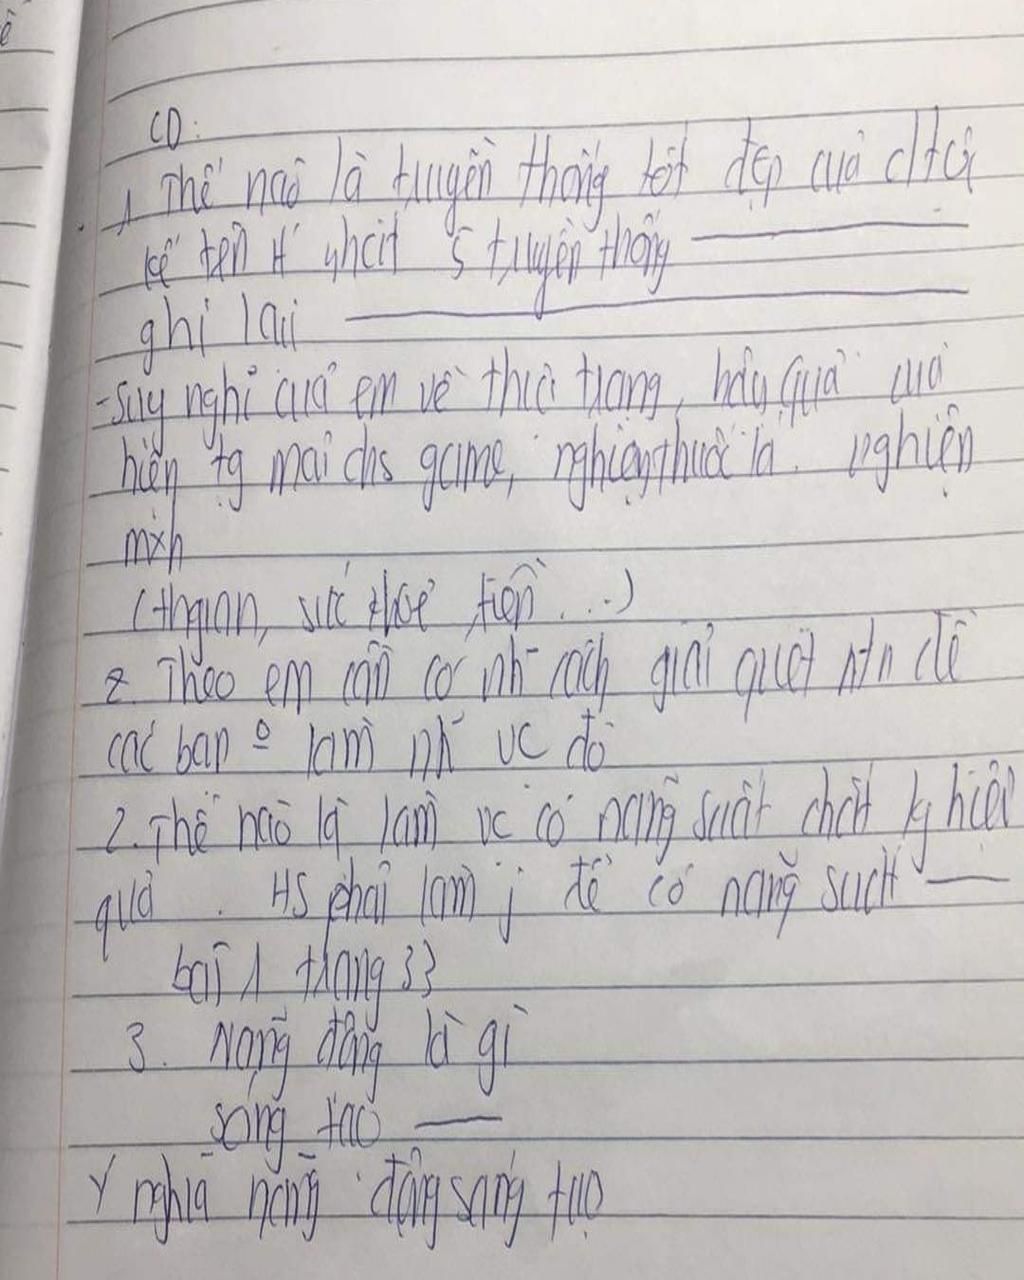 CD:
1 Thế nào là truyền thống tốt đẹp của dtộc
kể tên ít nhất 5 truyền thống
ghi lại
- Suy nghĩ của em về thực trạng, hậu quả của
hiện tg mải chs game, nghiện thuốc lá. nghiện
mxh
(thgian, sức khoẻ, tiền...)
2. Theo em cần có nh~ cách giải quyết ntn để
các bạn o làm nh~ vc đó
2. Thế nào là làm vc có năng suất chất lg hiệu
quả. HS phải làm j để có năng suất
bài 1 trang 33
3. Năng động là gì
sáng tạo
Ý nghĩa năng động sáng tạo